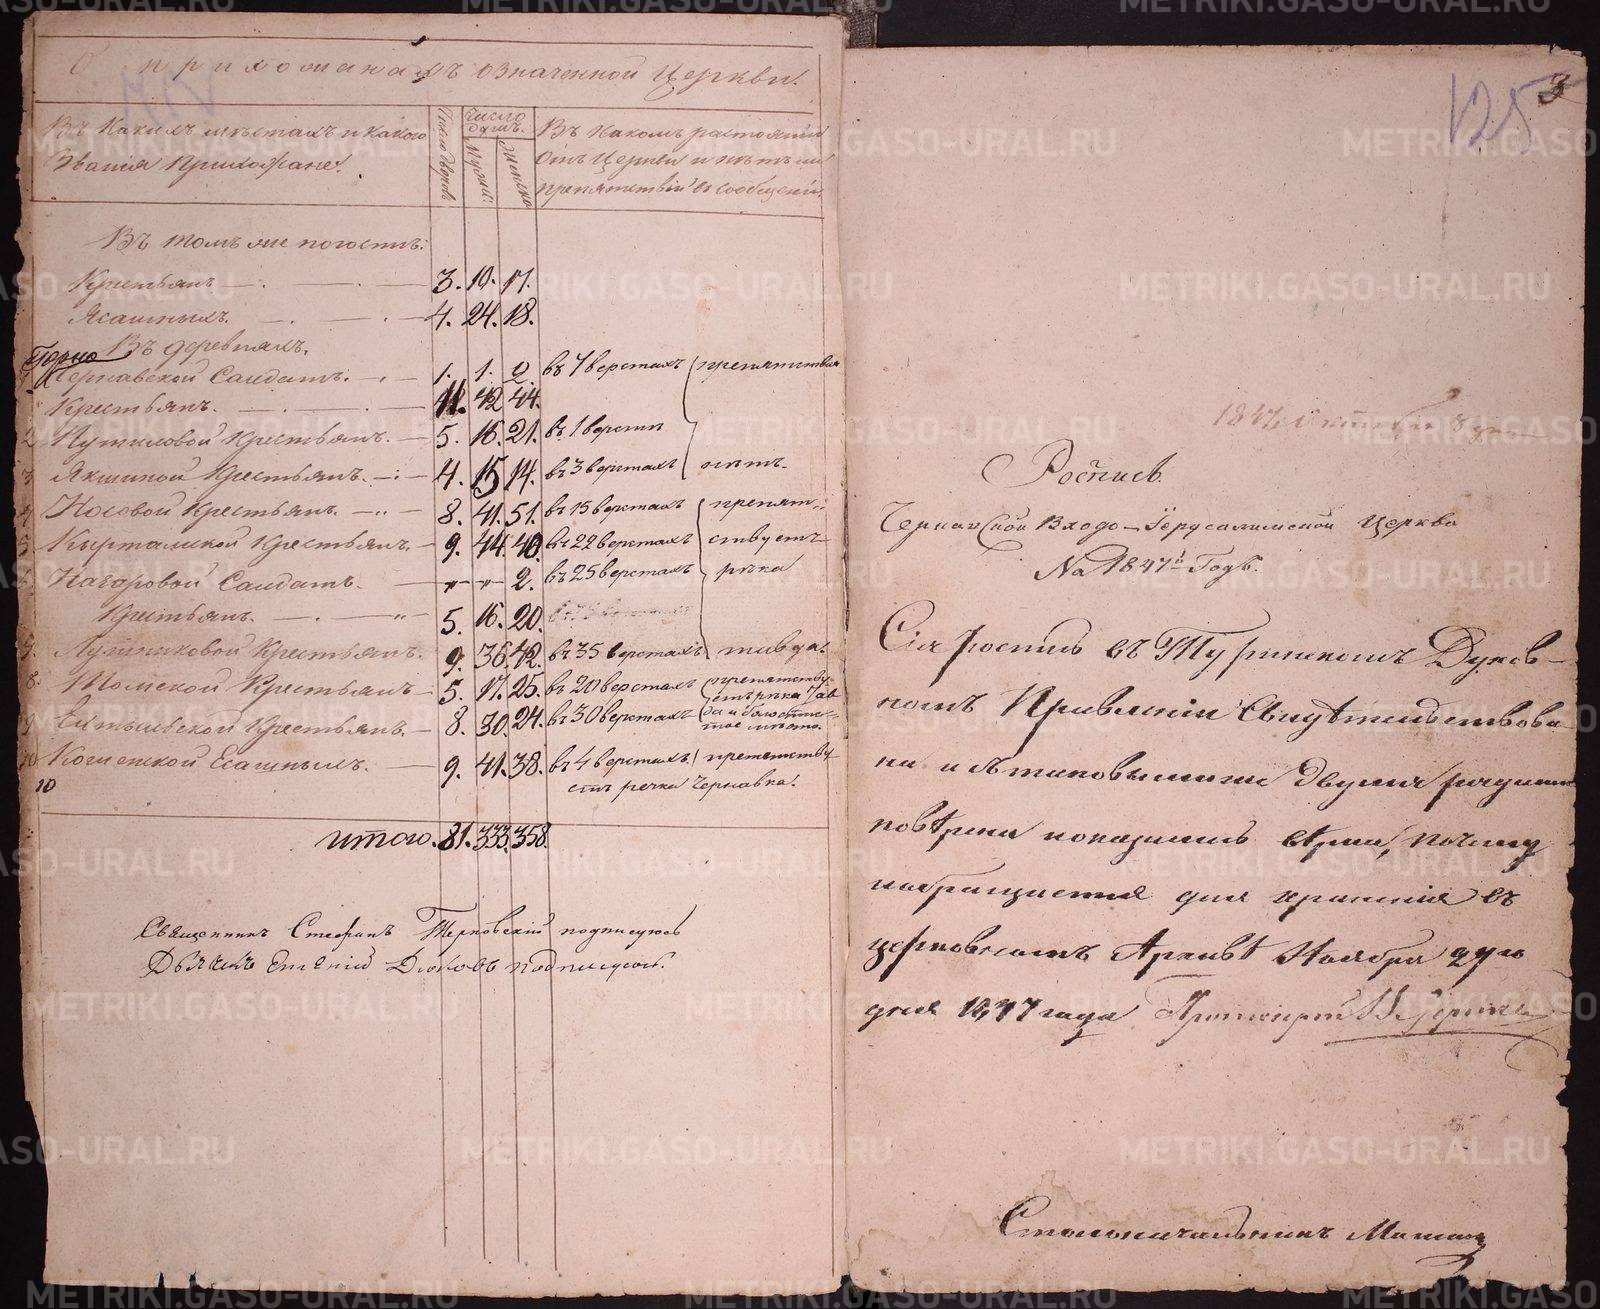 О прихожанахъ означенной Церкви.
Въ какихъ мѣстахъ и какого
Званія Прихожане.
Число дворовъ
Число
душъ.
Мужск:
Женска
Въ какомъ растояніи
Отъ Церкви и нѣтъ ли
препятствій въ сообщеніи
Въ томъ же погостѣ:
Крестьянъ 3. 10. 17.
Ясашныхъ. 4. 24. 18.
Въ деревняхъ.
Горно
1 Чернавской Салдатъ. 1. 1. 2. въ 7 верстахъ препятствия
Крестьянъ. 11. 42 44.
2 Путиловой Крестьянъ. 5. 16. 21. въ 1 верстѣ
3 Якшиной Крестьянъ. 4. 15 14. въ 3 верстахъ нѣтъ.
4 Носовой Крестьянъ. 8. 41. 51. въ 15 верстахъ препят-
5 Кыртамской Крестьянъ. 9. 44. 40. въ 22 верстахъ ствуетъ
6. Начаровой Салдатъ. 2. въ 25 верстахъ рѣка
Крестьянъ. 5. 16. 20.
7. Крестьянъ. 9. 36. 42. въ 35 верстахъ тавда.
8. Томской Крестьянъ 5. 17. 25. въ 20 верстахъ препятству-
етъ рѣка Тав
9 Крестьянъ. 8. 30. 24. въ 30 верстахъ да и болотис-
тое мѣсто.
10 Ясашныхъ. 9. 41. 38. въ 4 верстахъ. препятству
етъ речка Чернавка.
10
итого. 81. 333. 358.
Священникъ Стефанъ Терновскій подписуюсь
Дьячекъ Евгеній Дюковъ подписуюсь.
125
3
1847 Октября 8 дня
Роспись.
Чернавской Входо-Іерусалимской Церкви
На 1847й Годъ.
Сія роспись въ Туринскомъ Духов-
номъ Правленіи Свидѣтельствова
на и съ таковыми же двумя
повѣрена оказалась вѣрна, почему
возвращается для храненія въ
церковномъ Архивѣ Ноября 24го
дня 1847 года Протоіерей
Столоначальникъ